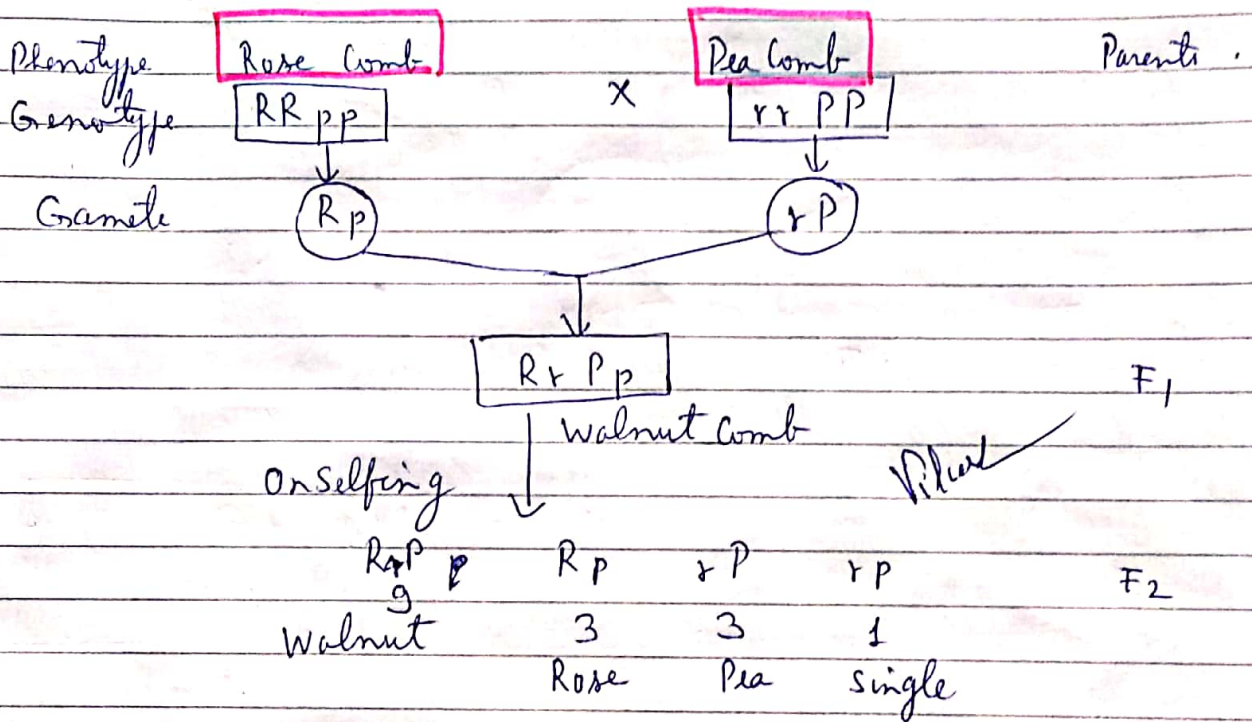 Phenotype Rose Comb Pea Comb Parents .
Genotype RR pp X rr PP
Gamete Rp rP
Rr Pp F1
Walnut Comb
On Selfing
Rp rP rp F2
9 3 3 1
Walnut Rose Pea Single